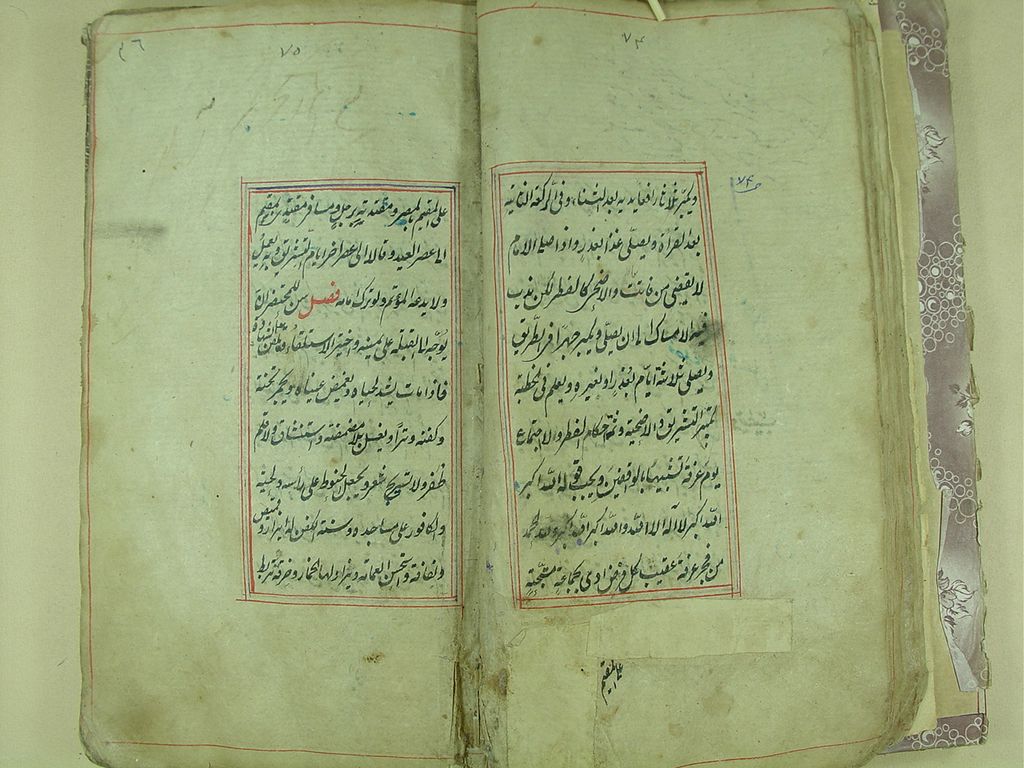 ۷۴
ويكبر ثلاثا رافعا يديه بعد الثناء وفى الركعة الثانية
بعد القراءة ويصلى غدا بعذر واذا صلى الامام
لا يقضى من فاتت والاضحى كالفطر لكن ندب
فيه الامساك الى ان يصلى ويكبر جهرا فى الطريق
ويصلى ثلاثة ايام بعذر او بغيره ويعلم فى الخطبة
تكبير التشريق والاضحية وثمه احكام الفطر والاجتماع
يوم عرفة تشبيها بالواقفين ويجب قوله الله اكبر
الله اكبر لا اله الا الله والله اكبر الله اكبر ولله الحمد
من فجر عرفة عقيب كل فرض ادى بجماعة مستحبة
على المقيم
۷۵
على المقيم بالمصر ومقتدية برجل ومسافر مقتد بمقيم
الى عصر العيد وقالا الى عصر اخر ايام التشريق وبه يعمل
ولا يدعه المؤتم ولو ترك امامه فصل سن للمحتضر ان
يوجه الى القبلة على يمينه واختير الاستلقاء
فاذا مات يشد لحياه ويغمض عيناه ويجمر تخته
وكفنه وترا ويغسل بلا مضمضة واستنشاق ولا قلم
ظفر ولا تسريح شعر ويجعل الحنوط على رأسه ولحيته
والكافور على مساجده وسنة الكفن له ازار وقميص
ولفافة واستحسن العمامة ويزاد لها الخمار وخرقة تربط